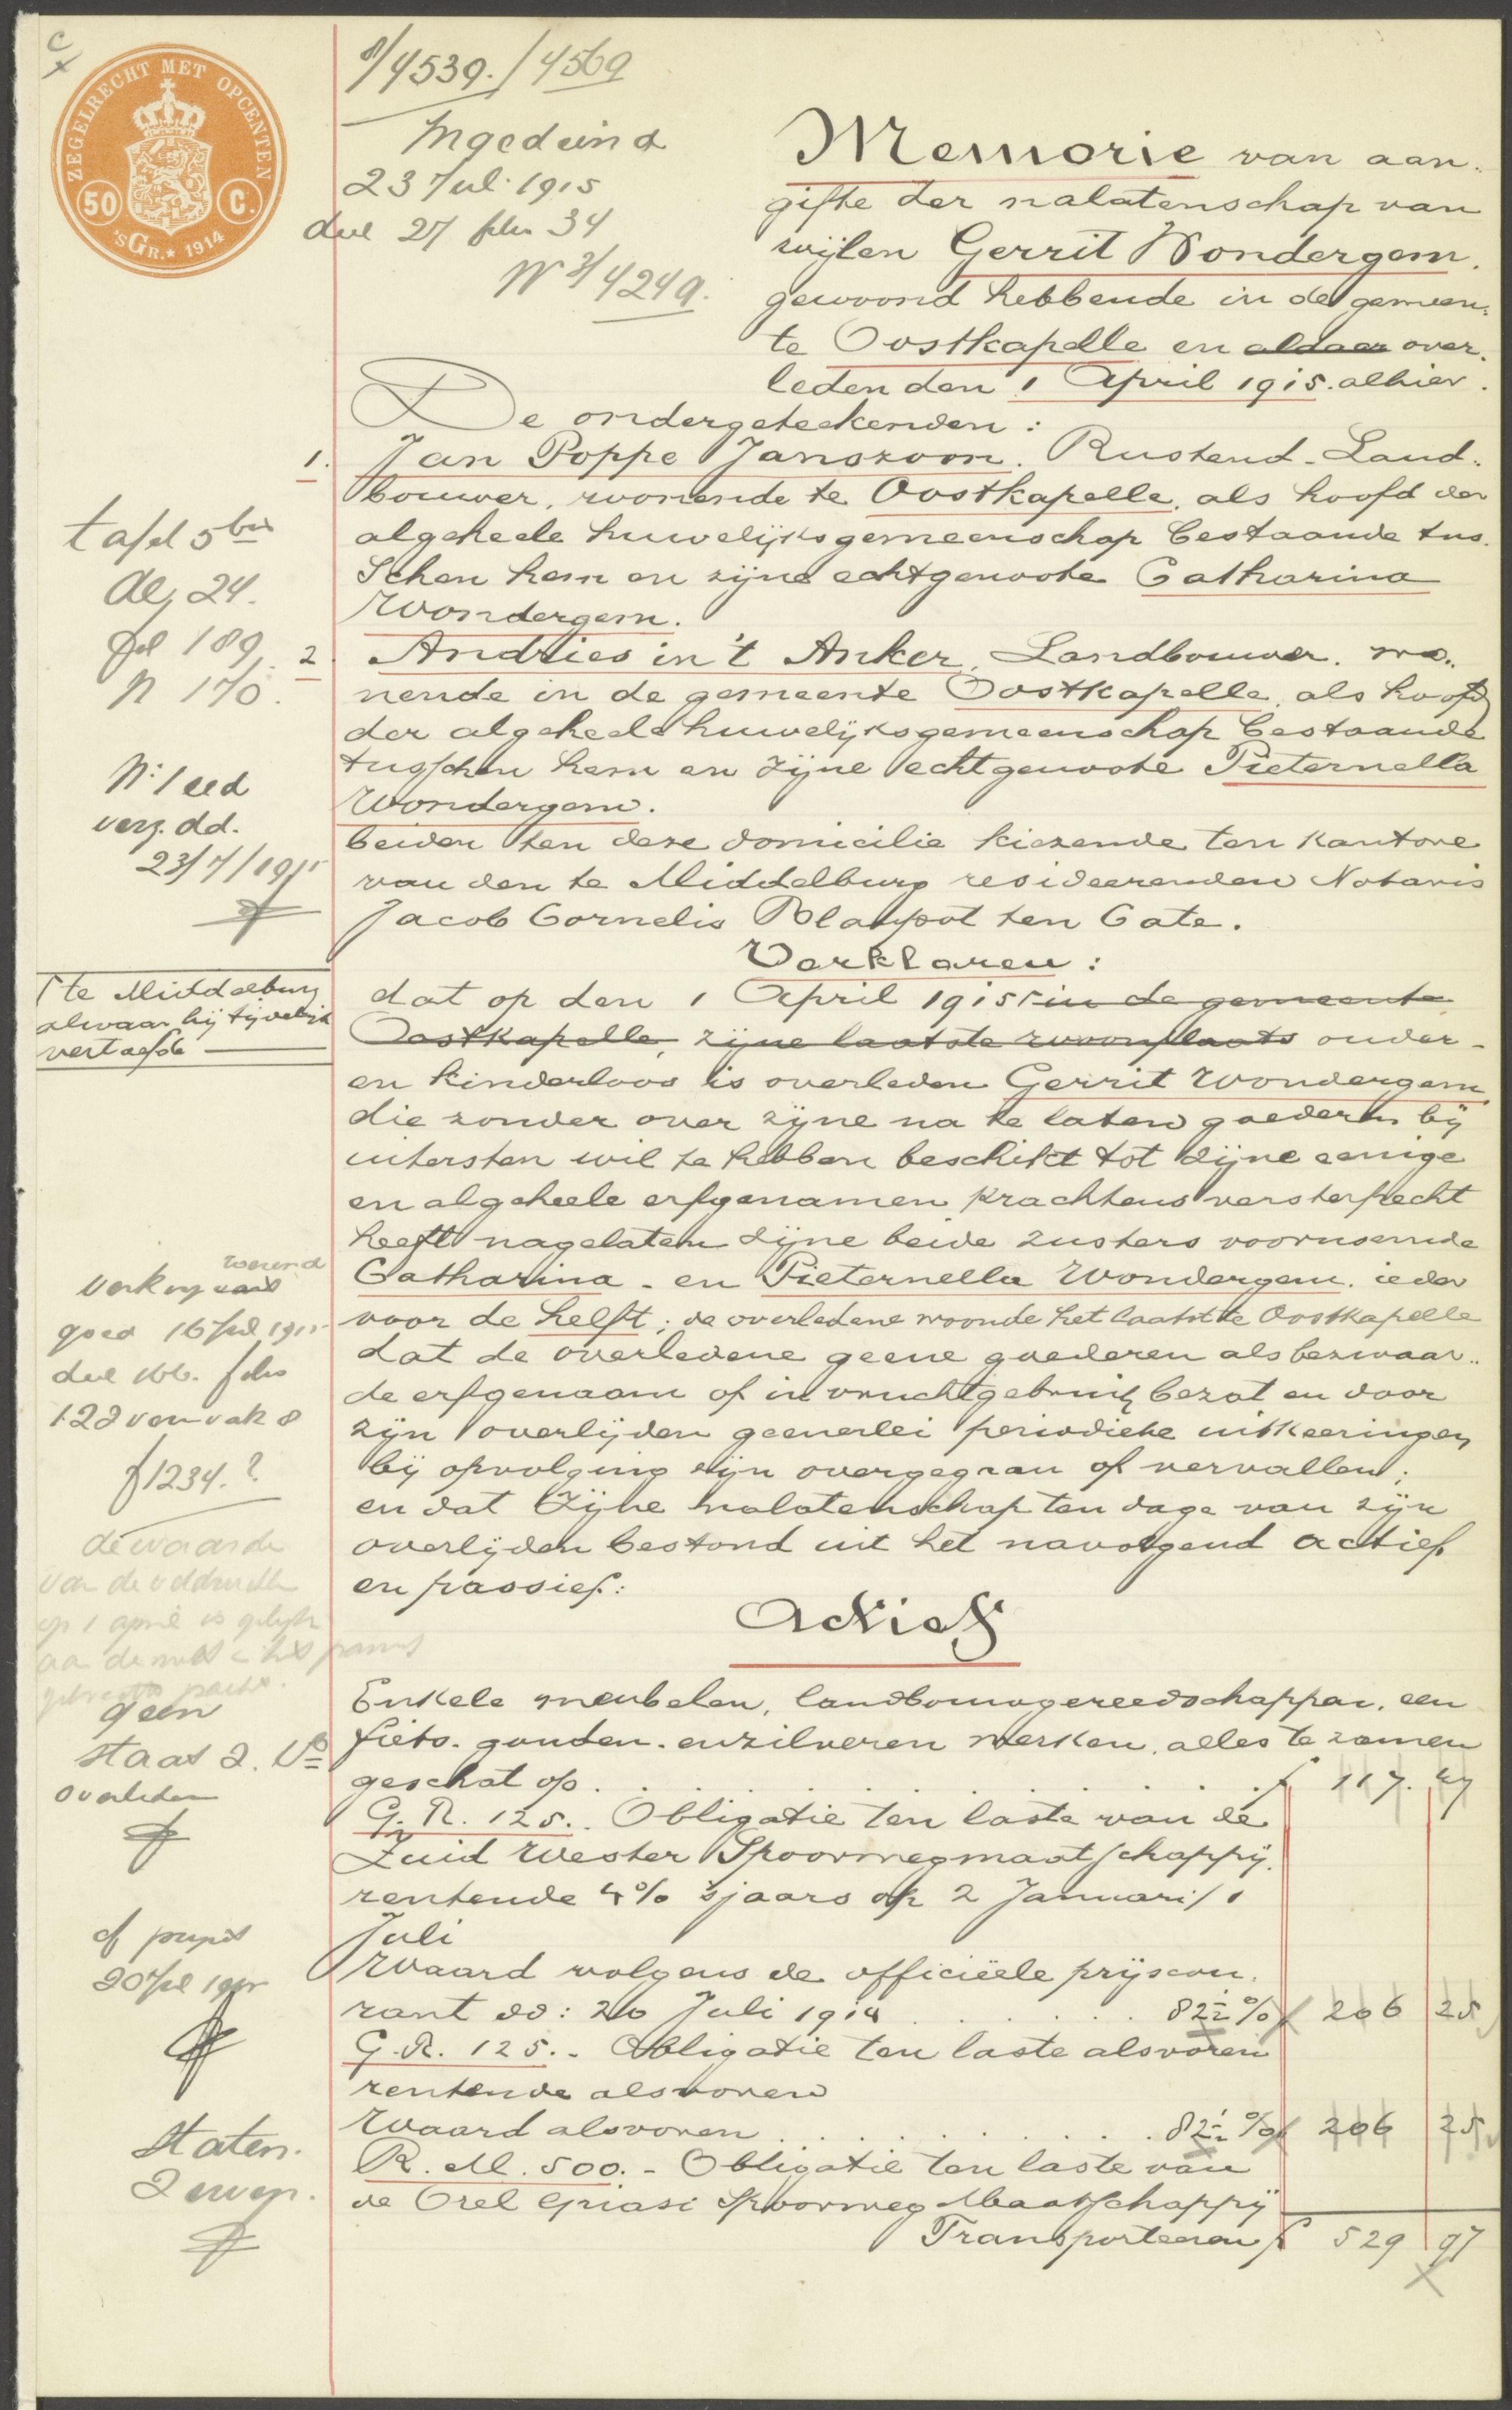 C
ZEGELRECHT MET OPCENTEN
50 C.
'SGR.★ 1914
8/4539./4569
Ingediend
23 Jul. 1915
deel 27 folio 34
No 3/4249.
Memorie van aan-
gifte der nalatenschap van
wijlen Gerrit Wondergem,
gewoond hebbende in de gemeen-
te Oostkapelle en aldaar over-
leden den 1 April 1915. alhier.
De ondergeteekenden:
1. Jan Poppe Janszoon. Rustend-Land-
bouwer, wonende te Oostkapelle, als hoofd der
algeheele huwelijksgemeenschap bestaande tus-
schen hem en zijne echtgenoote Catharina
Wondergem.
2. Andries in 't Anker, Landbouwer, wo-
nende in de gemeente Oostkapelle, als hoofd
der algeheele huwelijksgemeenschap bestaande
tusschen hem en zijne echtgenoote Pieternella
Wondergem.
beiden ten deze domicilie kiezende ten kantore
van den te Middelburg resideerenden Notaris
Jacob Cornelis Blaupot ten Cate.
Verklaren:
dat op den 1 April 1915 in de gemeente
Oostkapelle, zijne laatste woonplaats ouder-
en kinderloos is overleden Gerrit Wondergem,
die zonder over zijne na te laten goederen bij
uitersten wil te hebben beschikt tot zijne eenige
en algeheele erfgenamen krachtens versterfrecht
heeft nagelaten zijne beide zusters voornoemde
Catharina- en Pieternella Wondergem. ieder
voor de helft; de overledene woonde het laatst te Oostkapelle
dat de overledene geene goederen als bezwaar-
de erfgenaam of in vruchtgebruik bezat en door
zijn overlijden geenerlei periodieke uitkeeringen
bij opvolging zijn overgegaan of vervallen;
en dat zijne nalatenschap ten dage van zijn
overlijden bestond uit het navolgend actief
en passief:
Actief
Enkele meubelen, landbouwgereedschappen, een
fiets. gouden- en zilveren werken, alles te zamen
geschat op . . . . . . f 117. 47
G.R. 125.. Obligatie ten laste van de
Zuid Wester Spoorwegmaatschappij.
rentende 4% 'sjaars op 2 Januari/1
Juli
Waard volgens de officiëele prijscou-
rant dd: 20 Juli 1914 . . . . . 82½% f 206 25
G.R. 125.- Obligatie ten laste alsvoren
rentende alsvoren
Waard alsvoren . . . . . . 82½% f 206 25
R.M. 500.- Obligatie ten laste van
de Orel Griasi Spoorweg Maatschappij
Transporteeren f 529 97
tafel 5 bis
deel 24.
fol 189
N 170.
No 1 eed
verg. dd.
23/7/1915
te Middelburg
alwaar hij tijdelijk
vertoefde
goed 16 Juli 1915
128 van vak 8
f 1234.?
de waarde
op 1 april is gelijk
geen
staat
overleden
20 Juli 1915
Staten.
2 erven.